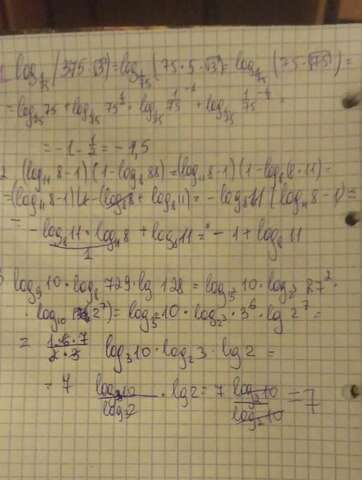 1. log_{1/75}(375·√3) = log_{1/75}(75·5·√3) = log_{1/75}(75·√75) =
= log_{1/75} 75 + log_{1/75} 75^{1/2} = log_{1/75} (1/75)^{-1} + log_{1/75} (1/75)^{-1/2} =
= -1 - 1/2 = -1,5
2. (log₁₁ 8 - 1)(1 - log₈ 88) = (log₁₁ 8 - 1)(1 - log₈(8·11)) =
= (log₁₁ 8 - 1)(1 - (log₈ 8 + log₈ 11)) = - log₈ 11 (log₁₁ 8 - 1) =
= - log₈ 11 · log₁₁ 8 + log₈ 11 = - 1 + log₈ 11
1
log 10 · log 729 · lg 128 = log 10 · log 27² ·
· log₁₀ 2⁷) = log 10 · log 3⁶ · lg 2⁷ =
= log₃ 10 · log₂ 3 · lg 2 =
= 7 log₃ 10 / log₃ 2 · lg 2 = 7 log₂ 10 / log₂ 10 = 7